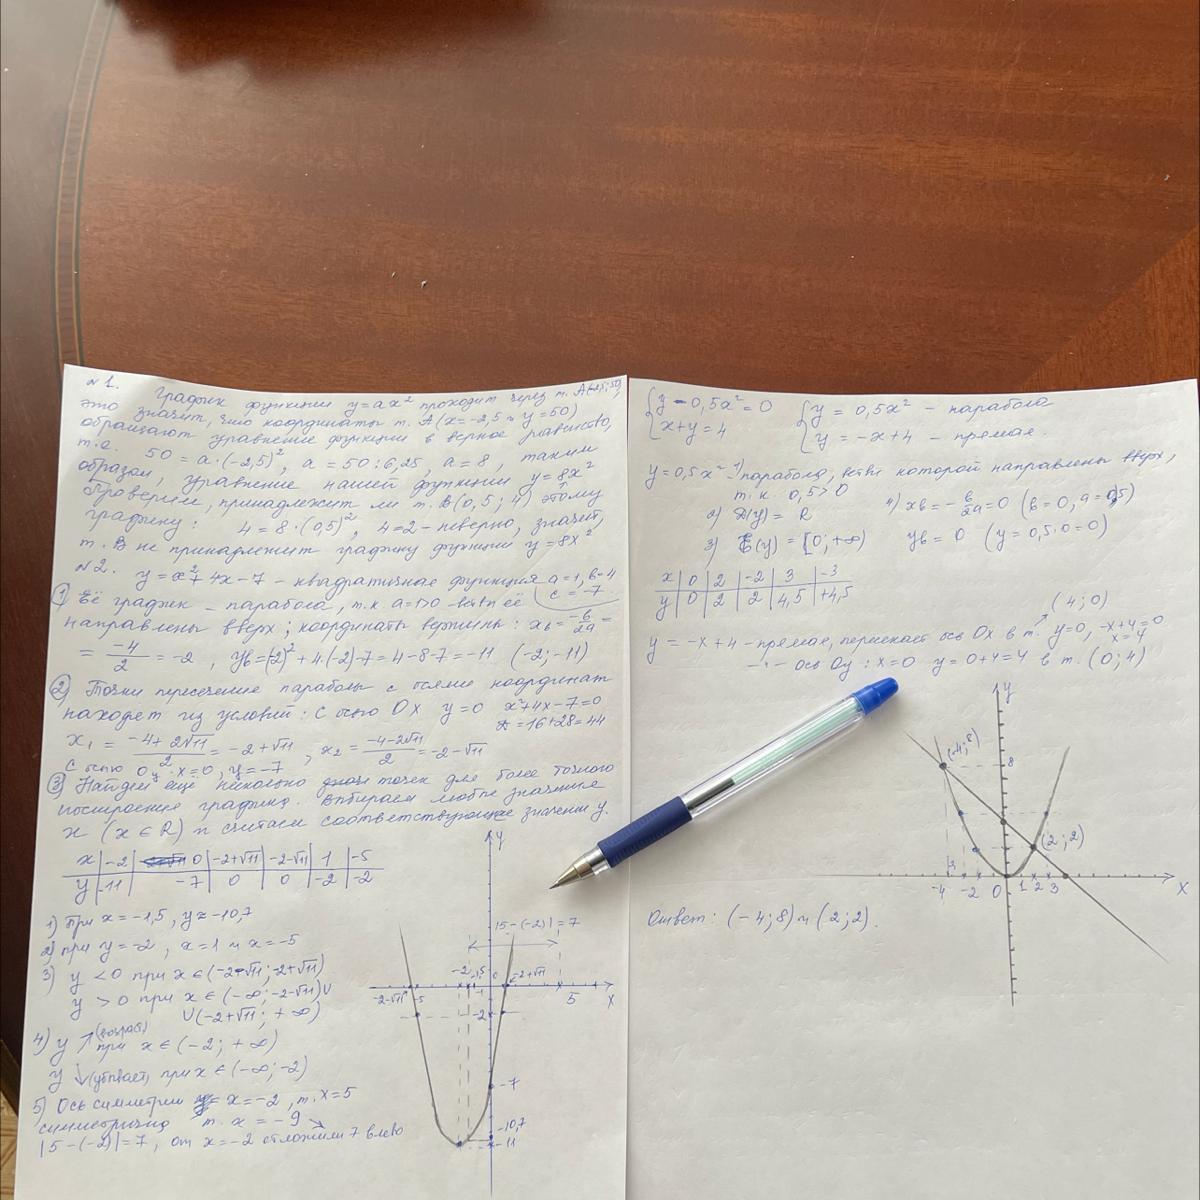 №1. График функции y=ax² проходит через т. A(-2,5; 50),
это значит, что координаты т. A (x=-2,5 и y=50)
обращают уравнение функции в верное равенство,
т.е. 50=a·(-2,5)², a=50:6,25, a=8, таким
образом, уравнение нашей функции y=8x²
Проверим, принадлежит ли т. B(0,5; 4) этому
графику: 4=8·(0,5)², 4=2 – неверно, значит,
т. B не принадлежит графику функции y=8x²
№2. y=x²+4x-7 – квадратичная функция a=1, b=4
c=-7
1) Её график – парабола, т.к. a=1>0 ветви её
направлены вверх; координаты вершины: xв=-b/2a=
=-4/2=-2, yв=(-2)²+4·(-2)-7=4-8-7=-11 (-2;-11)
2) Точки пересечения параболы с осями координат
находят из условий: с осью Ox y=0 x²+4x-7=0
D=16+28=44
x₁=-4+2√11/2=-2+√11, x₂=-4-2√11/2=-2-√11
с осью Oy: x=0, y=-7
3) Найдём ещё несколько точек для более точного
построения графика. Выбираем любые значения
x (x∈R) и считаем соответствующее значение y.
x | -2 | 0 | -2+√11 | -2-√11 | 1 | -5
y | -11 | -7 | 0 | 0 | -2 | -2
1) При x=-1,5, y≈-10,7
2) при y=-2, x=1 и x=-5
3) y<0 при x∈(-2-√11; -2+√11)
y>0 при x∈(-∞; -2-√11)∪
∪(-2+√11; +∞)
4) y ↗ (возраст) при x∈(-2; +∞)
y ↓ (убывает) при x∈(-∞; -2)
5) Ось симметрии x=-2, т. x=5
симметрично т. x=-9
|5-(-2)|=7, от x=-2 отложили 7 влево
y
|5-(-2)|=7
-2 -1,5 0 -2+√11
-2-√11 -5 -1 5 x
-2
-7
-10,7
-11
{y-0,5x²=0 {y=0,5x² – парабола
x+y=4 y=-x+4 – прямая.
y=0,5x² – 1) парабола, ветви которой направлены вверх,
т.к. 0,5>0
2) D(y)=R 4) xв=-b/2a=0 (b=0, a=0,5)
3) E(y)=[0; +∞) yв=0 (y=0,5·0=0)
x | 0 | 2 | -2 | 3 | -3
y | 0 | 2 | 2 | 4,5 | +4,5
(4; 0)
y=-x+4 – прямая, пересекает ось Ox в т. y=0, -x+4=0
x=4
–"– ось Oy: x=0 y=0+4=4 в т. (0; 4)
y
(-4; 8) 8
(2; 2)
-4 -3 -2 0 1 2 3 x
Ответ: (-4; 8) и (2; 2).